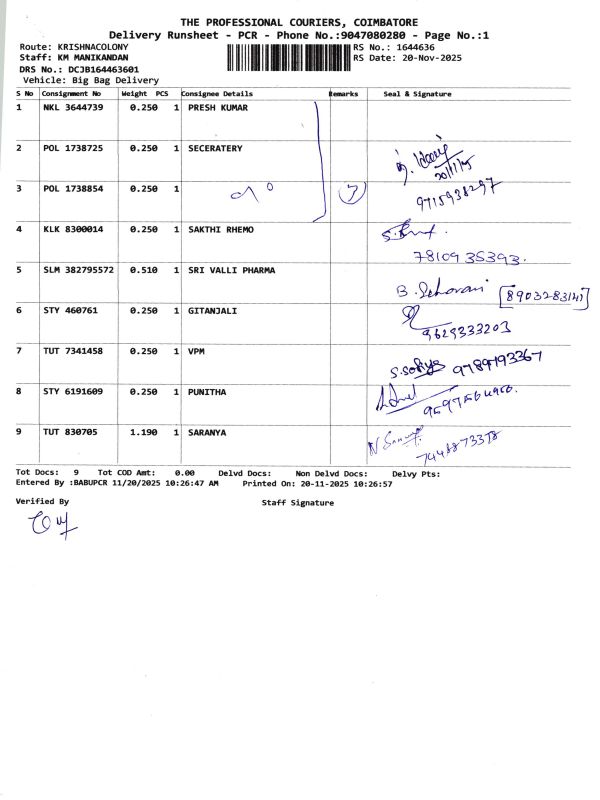 THE PROFESSIONAL COURIERS, COIMBATORE
Delivery Runsheet - PCR - Phone No.:9047080280 - Page No.:1
Route: KRISHNACOLONY RS No.: 1644636
Staff: KM MANIKANDAN RS Date: 20-Nov-2025
DRS No.: DCJB164463601
Vehicle: Big Bag Delivery
S No Consignment No Weight PCS Consignee Details Remarks Seal & Signature
1 NKL 3644739 0.250 1 PRESH KUMAR
2 POL 1738725 0.250 1 SECERATERY
20/11/25
3 POL 1738854 0.250 1 7 9715938297
4 KLK 8300014 0.250 1 SAKTHI RHEMO
7810935393.
5 SLM 382795572 0.510 1 SRI VALLI PHARMA
B. [8903283141]
6 STY 460761 0.250 1 GITANJALI
9629333203
7 TUT 7341458 0.250 1 VPM
9789793367
8 STY 6191609 0.250 1 PUNITHA
9 TUT 830705 1.190 1 SARANYA
Tot Docs: 9 Tot COD Amt: 0.00 Delvd Docs: Non Delvd Docs: Delvy Pts:
Entered By :BABUPCR 11/20/2025 10:26:47 AM Printed On: 20-11-2025 10:26:57
Verified By Staff Signature